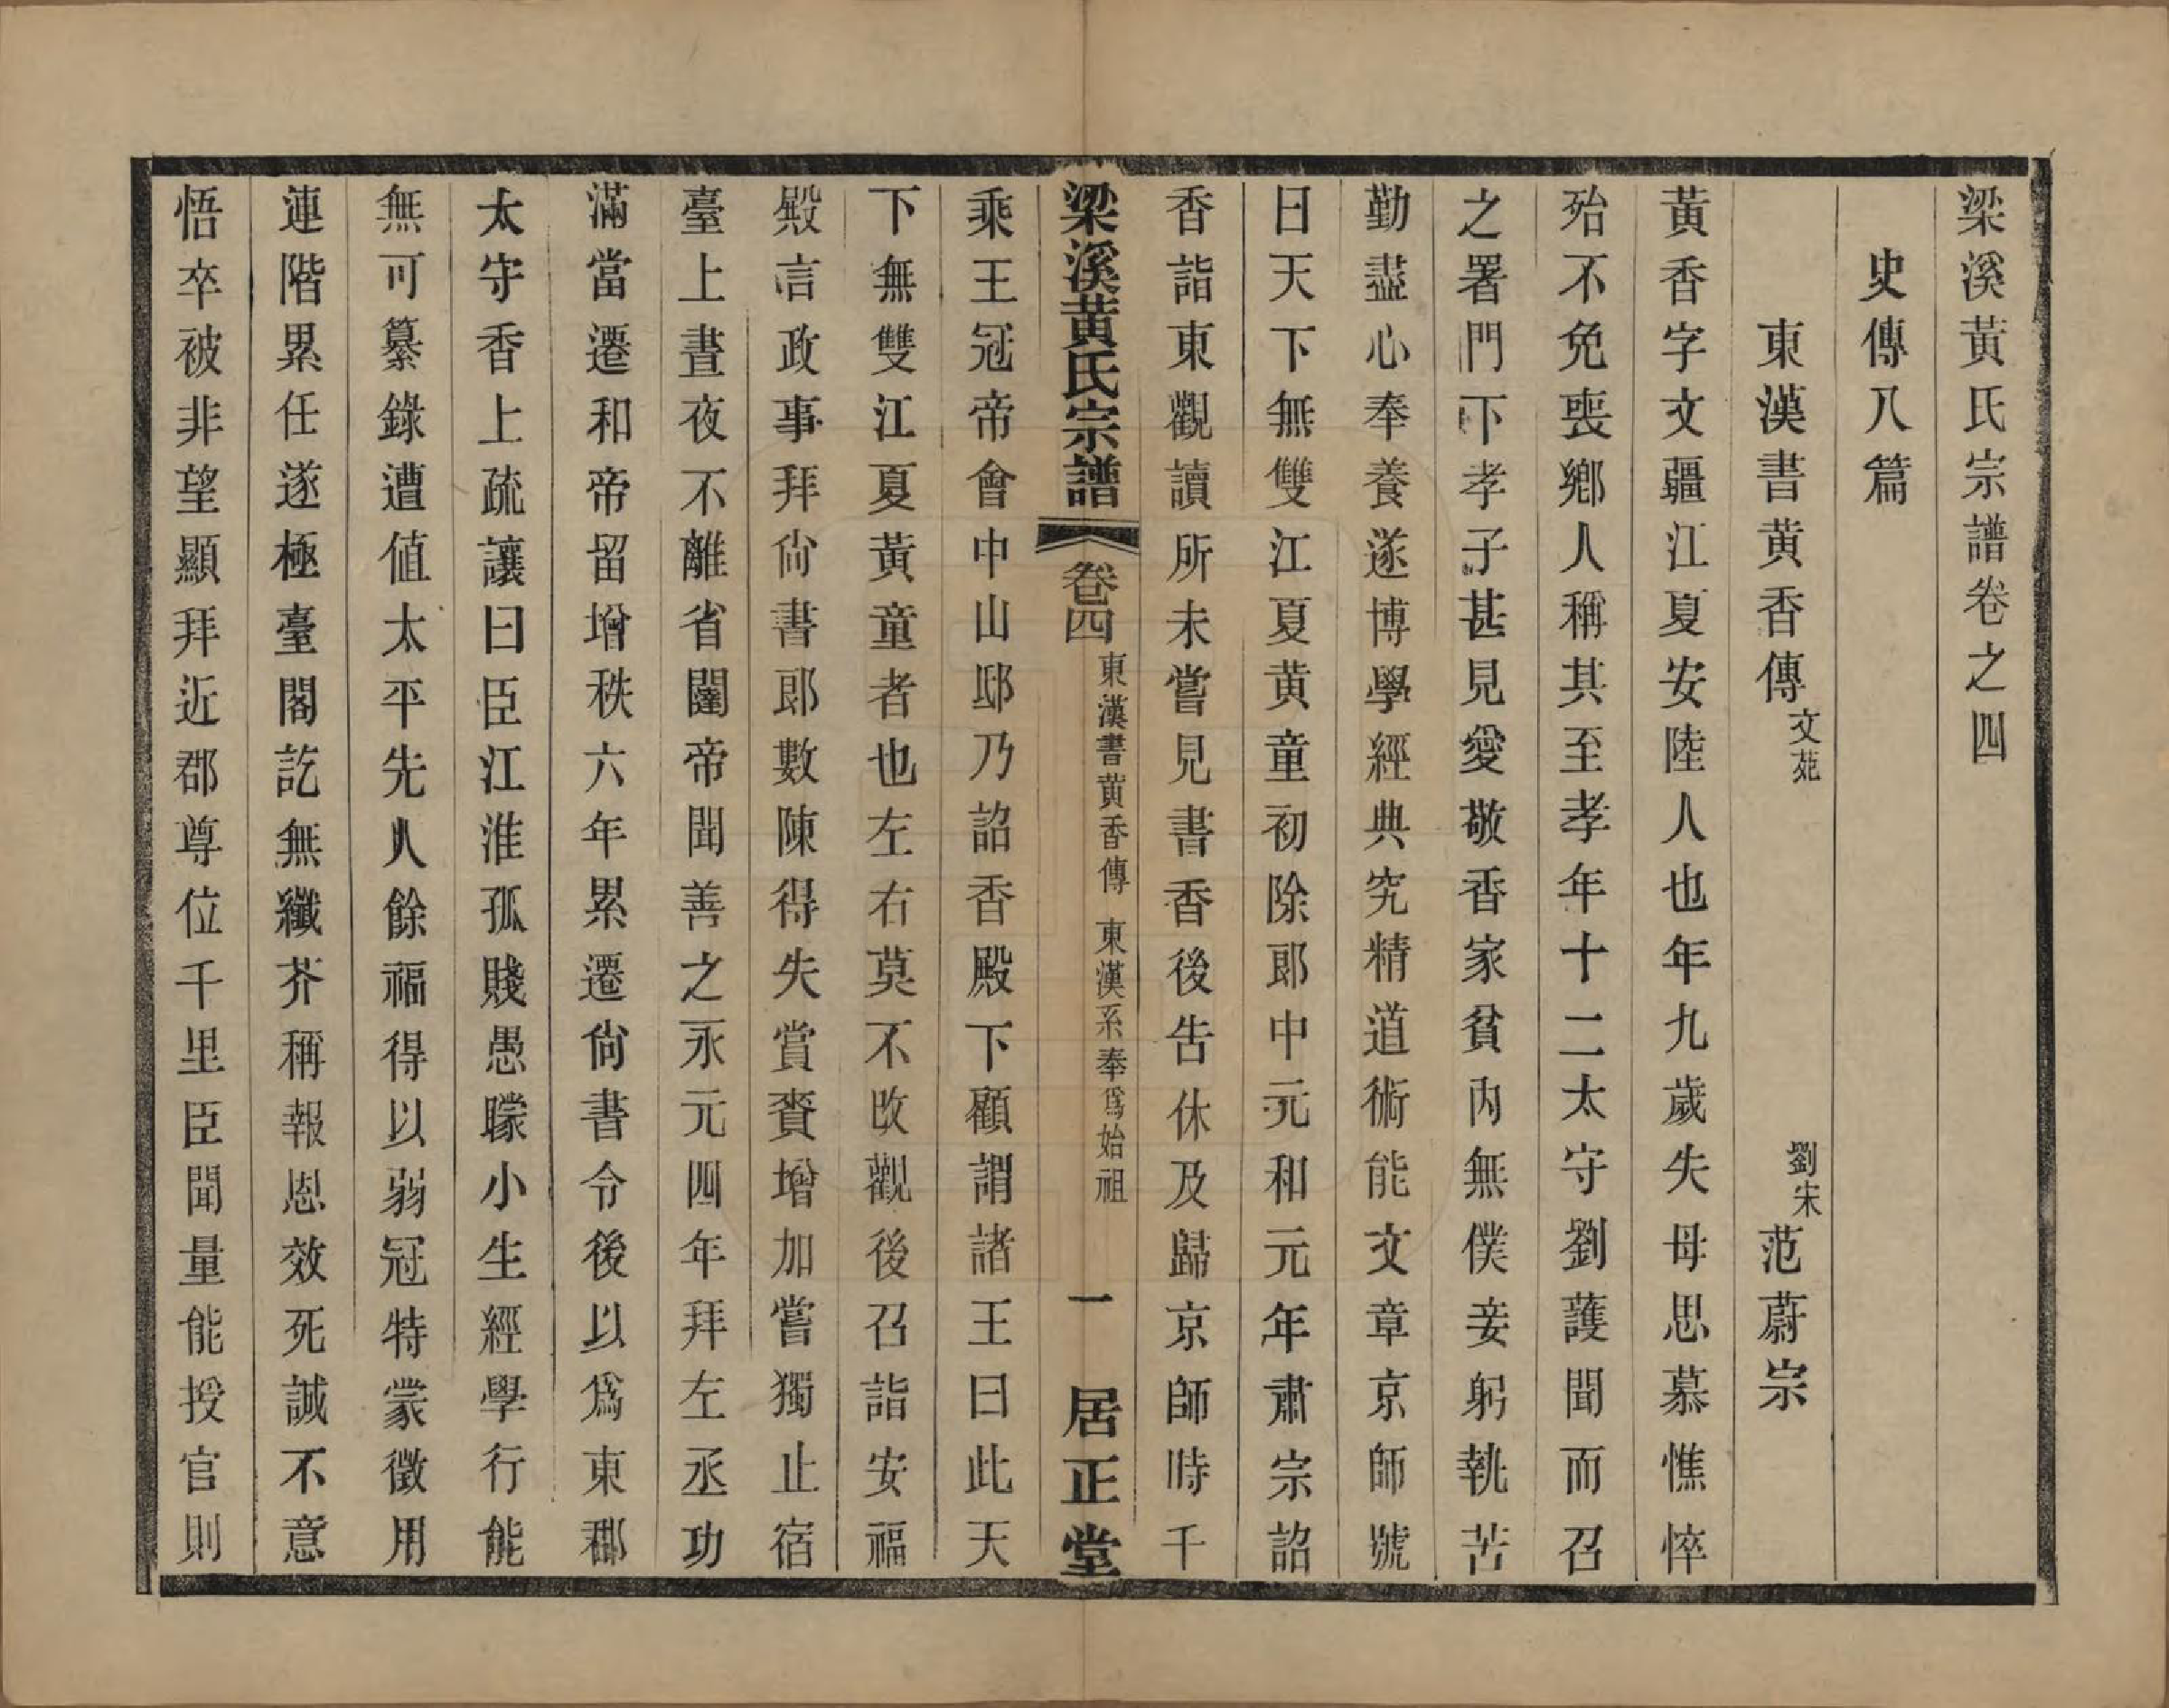 梁溪黃氏宗譜卷之四
史傳八篇
東漢書黃香傳文苑 劉宋范蔚宗
黃香字文疆江夏安陸人也年九歲失母思慕憔悴
殆不免喪鄉人稱其至孝年十二太守劉護聞而召
之署門下孝子甚見愛敬香家貧內無僕妾躬執苦
勤盡心奉養遂博學經典究精道術能文章京師號
曰天下無雙江夏黃童初除郎中元和元年肅宗詔
香詣東觀讀所未嘗見書香後告休及歸京師時千
梁溪黃氏宗譜 卷四 東漢書黃香傳 東漢系奉爲始祖 一 居正堂
乘王冠帝會中山邸乃詔香殿下顧謂諸王曰此天
下無雙江夏黃童者也左右莫不改觀後召詣安福
殿言政事拜尙書郎數陳得失賞賚增加嘗獨止宿
臺上晝夜不離省闥帝聞善之永元四年拜左丞功
滿當遷和帝留增秩六年累遷尙書令後以爲東郡
太守香上疏讓曰臣江淮孤賤愚矇小生經學行能
無可纂錄遭值太平先人餘福得以弱冠特蒙徵用
連階累任遂極臺閣訖無纖芥稱報恩效死誠不意
悟卒被非望顯拜近郡尊位千里臣聞量能授官則